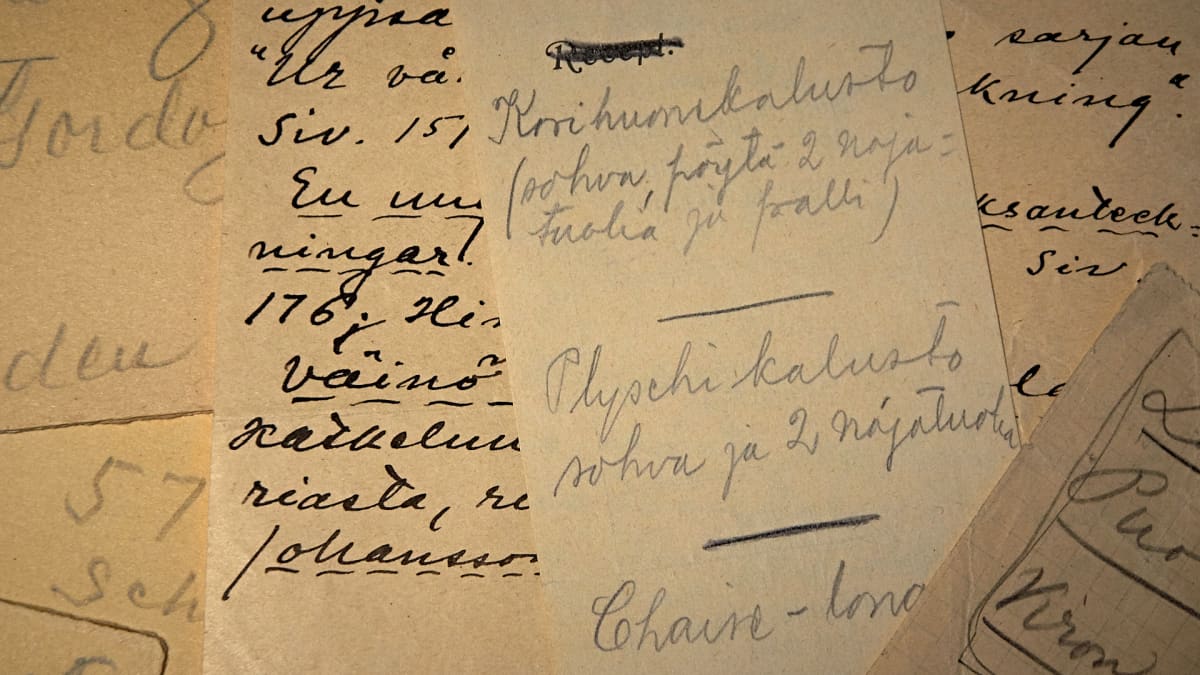 Tordo
den
57
Sch
uppsa
"Ur vå
Siv. 151
En un
ningar.
176; Hi
Väinö
Katkelm
riasta, re
Johansson
Recept.
Korihuonekalusto
(sohva, pöytä 2 noja=
tuolia ja palli)
Plyschi kalusto
sohva ja 2 nojatuolia
Chaise-long
sarjan
kning".
ksanteck=
Siv.
la
Puo
Kron